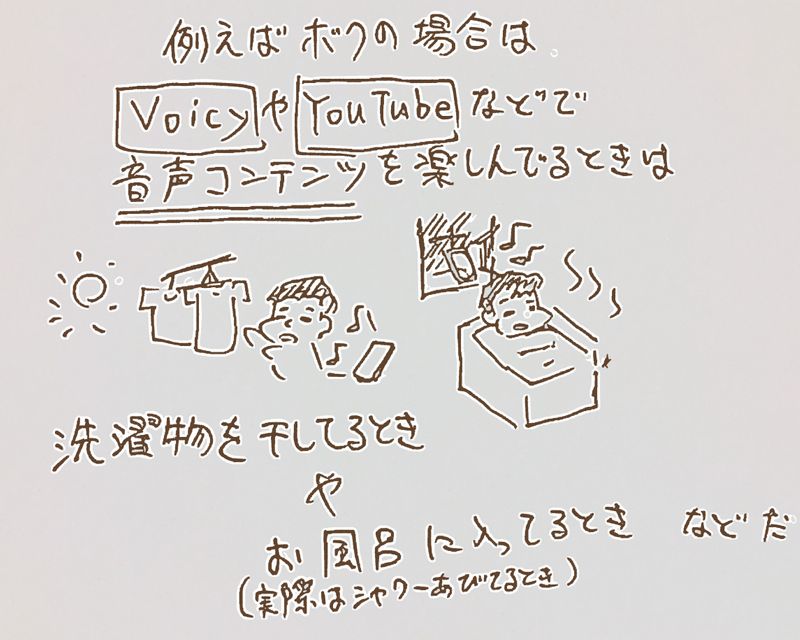 例えばボクの場合は
VoicyやYouTubeなどで
音声コンテンツを楽しんでるときは
洗濯物を干してるとき
や
お風呂に入ってるとき などだ
(実際はシャワーあびてるとき)